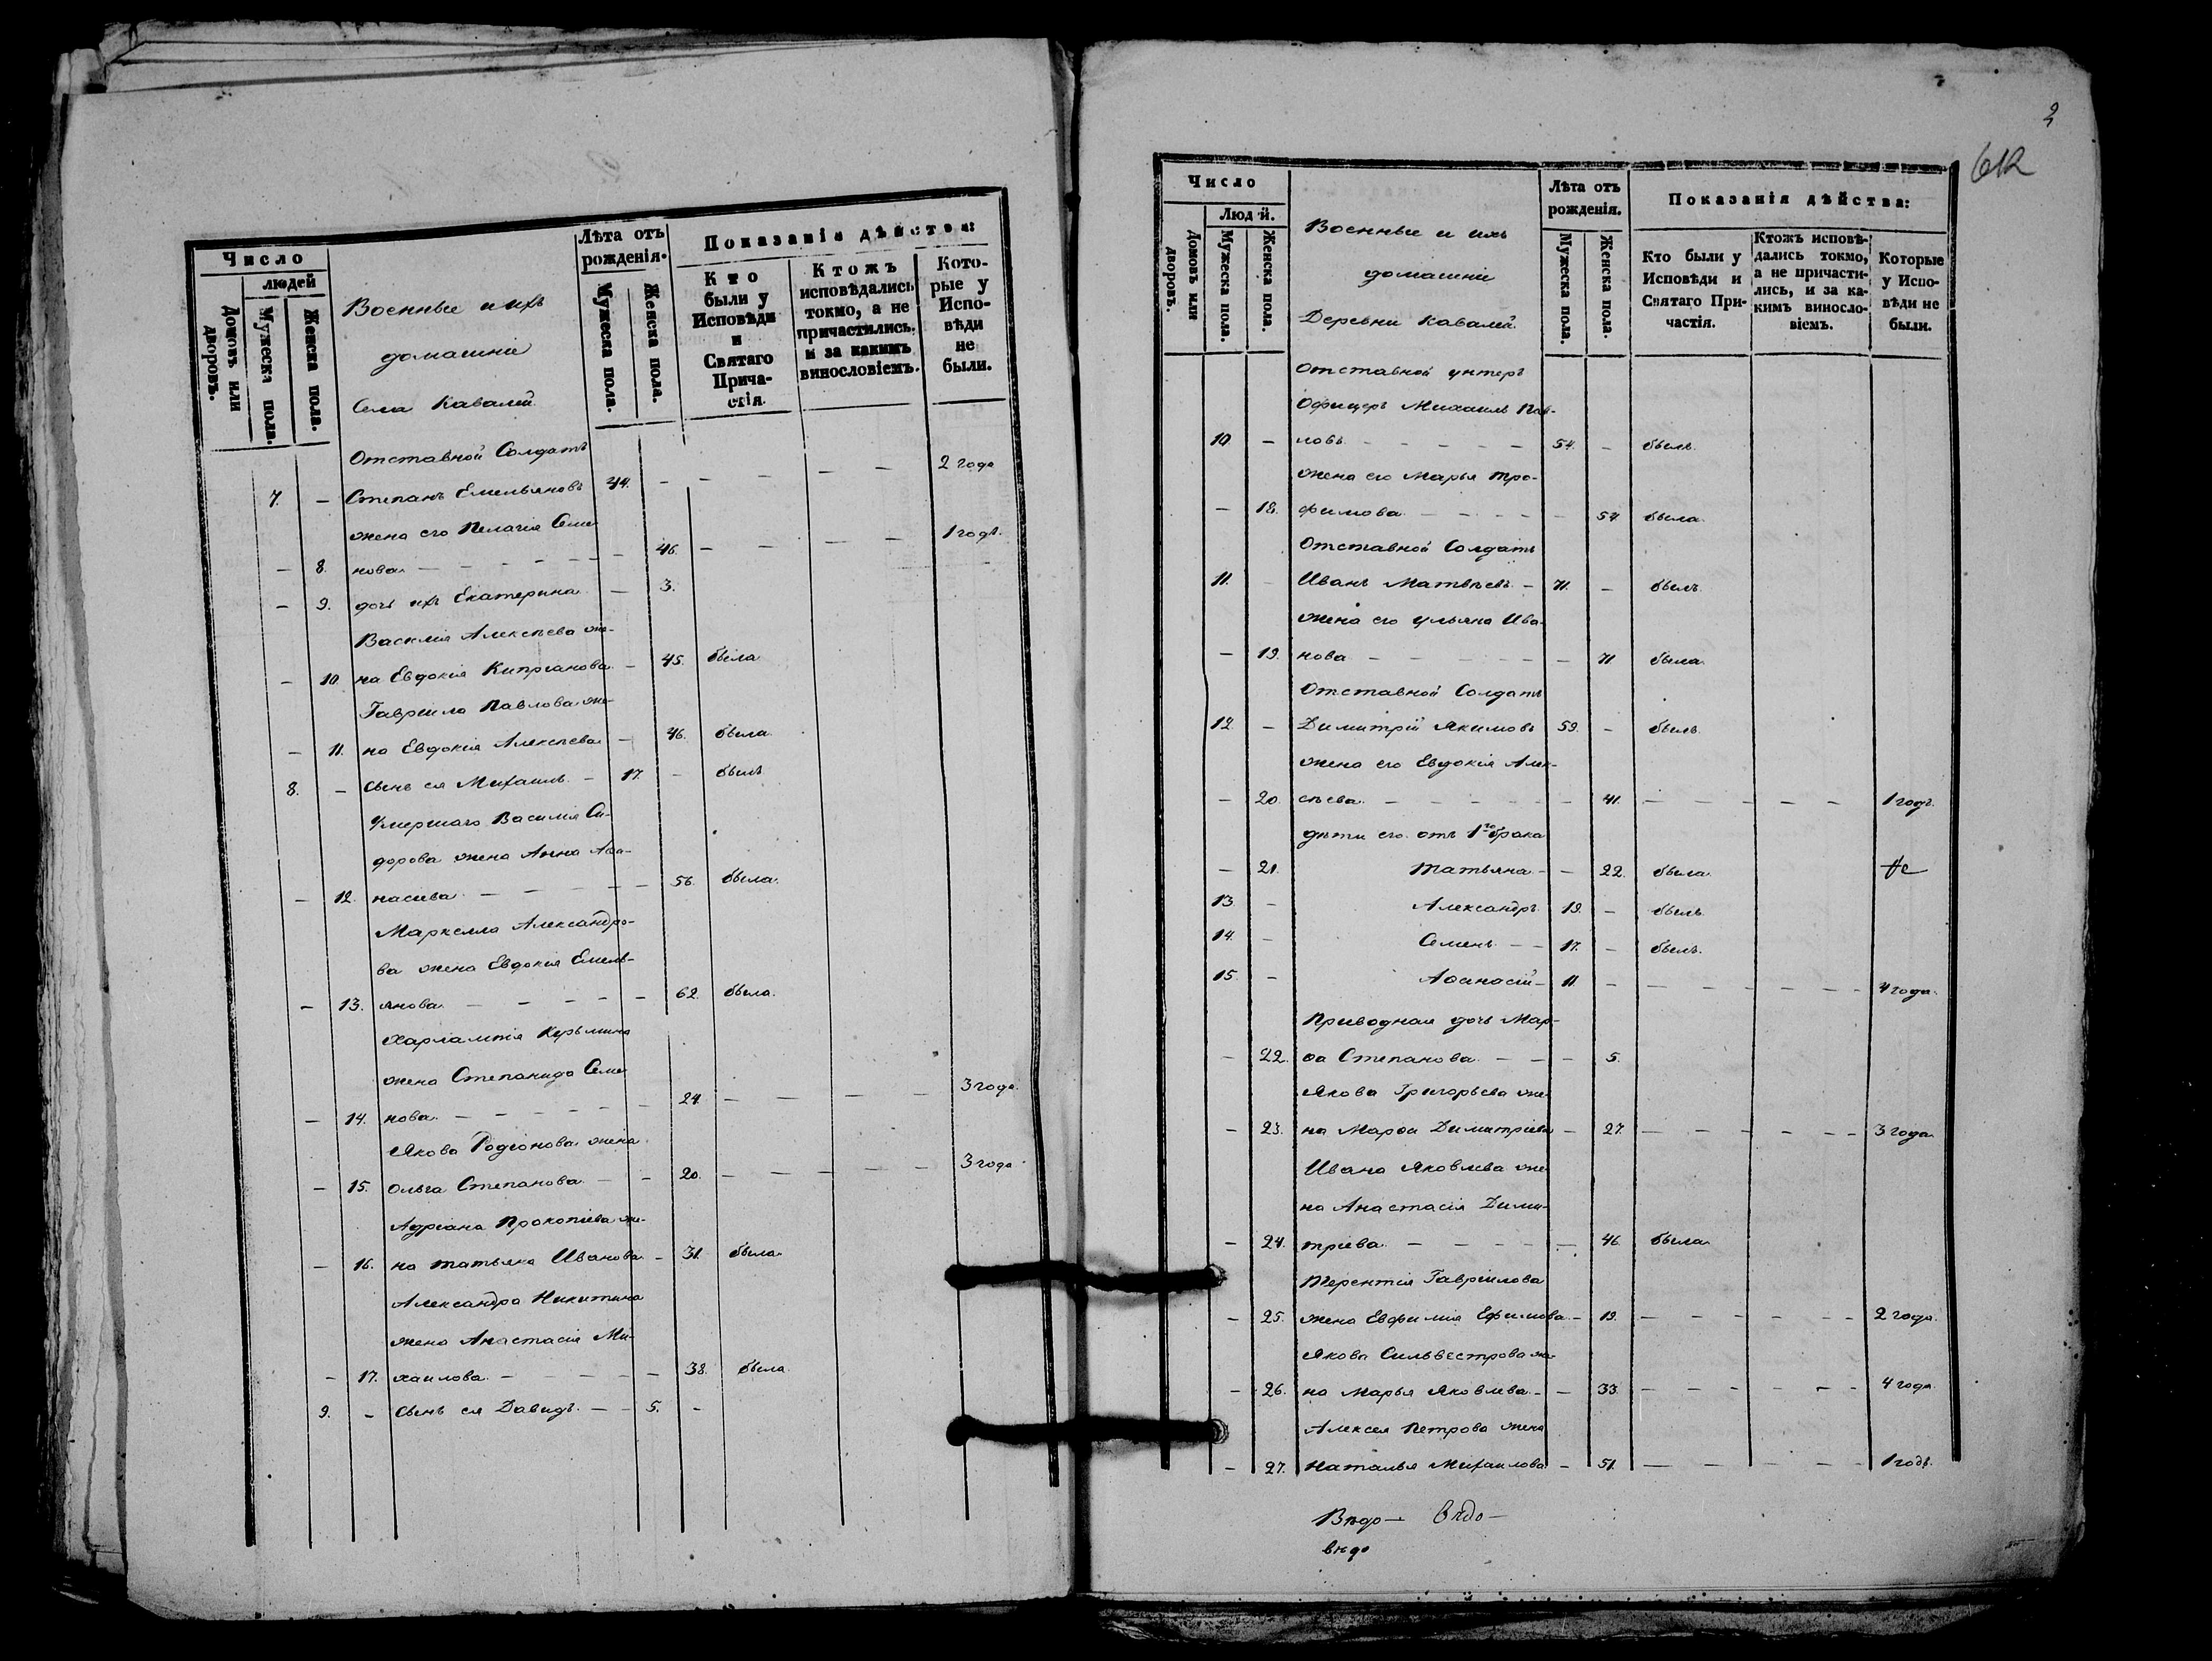 Число
людей
Домовъ или дворовъ.
Мужеска пола.
Женска пола.
Военные и ихъ
домашніе
Села Кавалей
Лѣта отъ рожденія.
Мужеска пола.
Женска пола.
Показанія дѣйства:
Кто были у Исповѣди и Святаго Причастія.
Ктожъ исповѣдались токмо, а не причастились. и за какимъ винословіемъ.
Которые у Исповѣди не были.
Отставной Солдатъ
7. — Степанъ Емельяновъ 44. — — — — — 2 года
жена его Пелагія Семе-
— 8. нова — — — — — 46. — — — — 1 годъ.
— 9. дочь ихъ Екатерина — 3.
Василія Алексѣева же-
— 10. на Евдокія Кипріанова — 45. была
Гавріила Павлова же-
— 11. на Евдокія Алексѣева — 46. была
8. — сынъ ея Михаилъ. — 17. — былъ
Умершаго Василія Си-
дорова жена Анна Аѳа-
— 12. насьева — — — — — 56. была.
Маркелла Александро-
ва жена Евдокія Емель-
— 13. янова — — — — — 62. была.
Харлампія Курьмина
жена Степанида Семе-
— 14. нова. — — — — — 24. — — — — 3 года.
Якова Родіонова жена
— 15. Ольга Степанова — — 20. — — — — — 3 года
Адріана Прокопіева же-
— 16. на Татьяна Иванова — 31. была
Александра Никитина
жена Анастасія Ми-
— 17. хаилова. — — — — — 38. была
9. — сынъ ея Давидъ. — — 5. —
2
612
Число
Людей.
Домовъ или дворовъ.
Мужеска пола.
Женска пола.
Военные и ихъ
домашніе
Деревни Кавалей.
Лѣта отъ рожденія.
Мужеска пола.
Женска пола.
Показанія дѣйства:
Кто были у Исповѣди и Святаго Причастія.
Ктожъ исповѣдались токмо, а не причастились, и за какимъ винословіемъ.
Которые у Исповѣди не были.
Отставной унтеръ
Офицеръ Михаилъ Пав-
10. — ловъ. — — — — — 54. — былъ.
жена его Марья Тро-
— 18. фимова — — — — — 54 была.
Отставной Солдатъ
11. — Иванъ Матвѣевъ — 71. — былъ.
жена его Ульяна Ива-
— 19. нова — — — — — — 71 была.
Отставной Солдатъ
12. — Димитрій Якимовъ 59. — былъ
жена его Евдокія Алек-
— 20. сѣева. — — — — — — 41. — — — — — 1 годъ.
дѣти его отъ 1го брака
— 21. Татьяна — — 22. была.
13. — Александръ 19. — былъ.
14. — Семенъ — — 17. — былъ.
15. — Аѳанасій — 11. — — — — — — — 4 года.
Приводная дочь Мар-
— 22. ѳа Степанова. — — — 5.
Якова Григорьева же-
— 23. на Марѳа Димитріева — 27. — — — — — — 3 года.
Ивана Яковлева же-
на Анастасія Дими-
— 24. тріева. — — — — — 46. была.
Терентія Гавріилова
— 25. жена Евфимія Ефимова. — 19. — — — — — — 2 года.
Якова Сильвестрова же-
— 26. на Марья Яковлева. — — 33. — — — — — — 4 года
Алексея Петрова жена
— 27. Наталья Михаилова — 51. — — — — — — 1 годъ.
Вѣдо— Вѣдо—
вѣдо